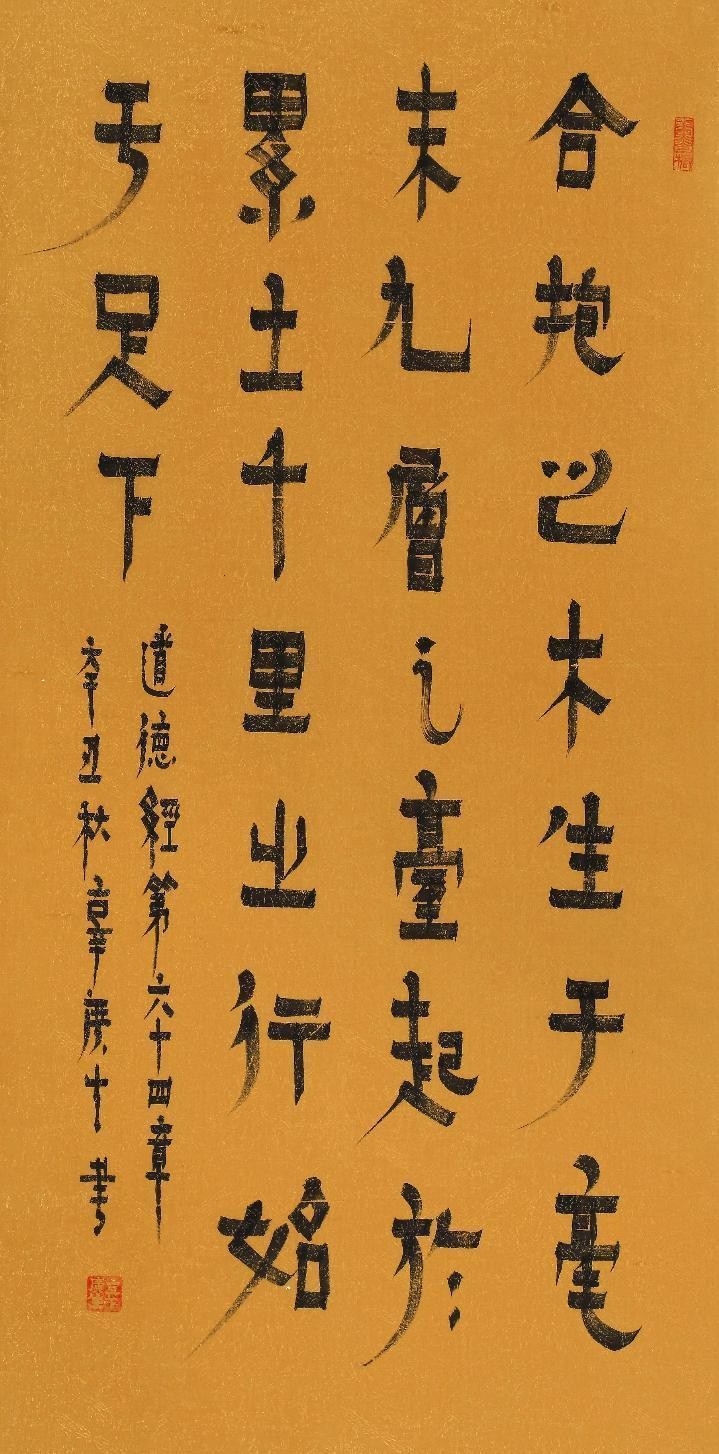 合抱之木生于毫
末九層之臺起於
累土千里之行始
于足下
道德經第六十四章
辛丑秋書